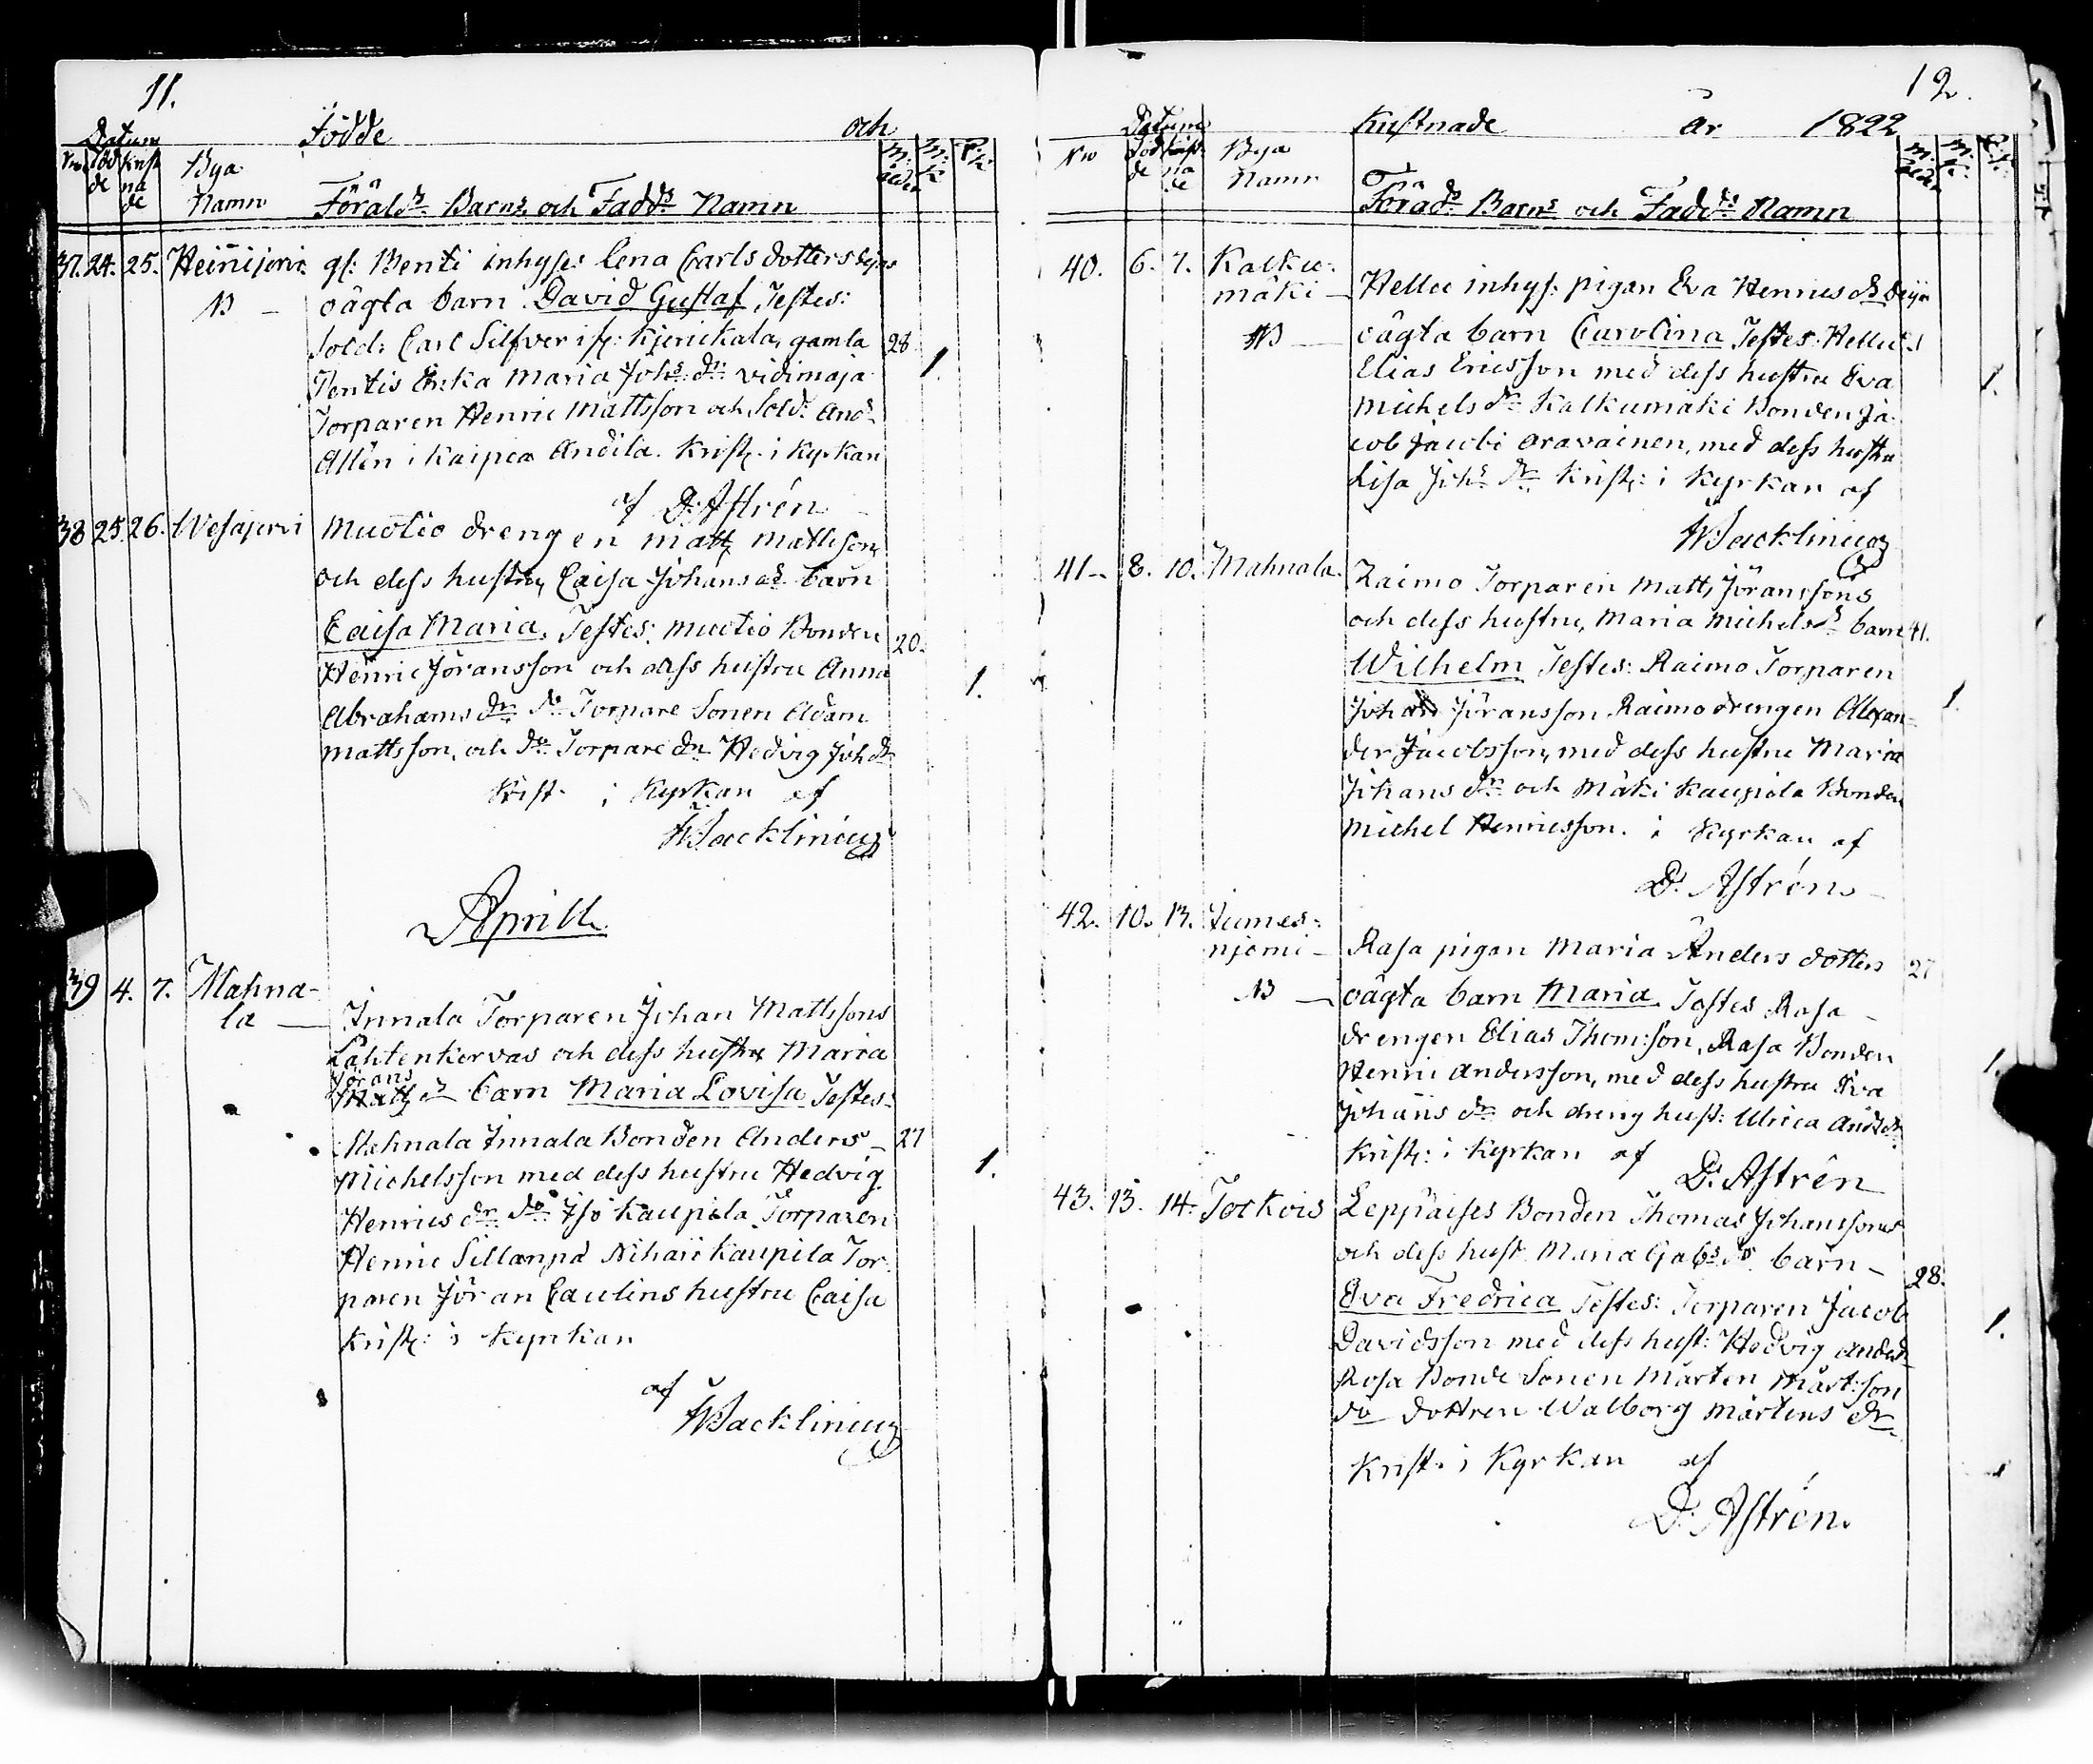 11.
Födde och
Datum
Nro Föd de Krist na de
Bya Namn
Föräldrs Barns och Fadds Namn
M. ålder M. K. P. K.
37. 24. 25. Heinijervi gl: Benti inhyses Lena Carls dotters
NB – oägta barn David Gustaf, Testes:
Sold: Carl Silfver i Kjerickala, gamla 28
Pentis Enka Maria Johs dr: vidimaja 1.
Torparen Henric Mattsson och Sold: And:
Allén i Kaipea Andila. Krist: i Kyrkan
af D: Astrén
38 25. 26. Wesajervi Muotio drengen Matts Mattsson
och dess hustru, Caisa Johans ds barn
Caisa Maria, Testes: Muotio Bonden 20.
Henric Jöransson och dess hustru Anna
Abrahams dr: do Torpare Sonen Adam 1.
Mattsson, och do Torpare dr Hedvig Joh dr
Krist. i Kyrkan af
Wacklinius
Aprill
39 4. 7. Mahna-
la – Innala Torparen Johan Mattssons
Lähtenkorvas och dess hustru Maria
Jörans
Matts ds barn Maria Lovisa Testes:
Mahnala Innala Bonden Anders – 27
Michelsson med dess hustru Hedvig 1.
Henrics dr do Iso Kaupila Torparen
Henric Sillanpä Nihari Kaupila Tor-
paren Jöran Caulins hustru Caisa
Krist: i Kyrkan
af
Wacklinius
12.
Kristnade År 1822
Datum
Nro Föd de Krist na de
Bya Namn
Föräds Barns och Fadds Namn
M. ålder M. K. P. K.
40. 6. 7. Kalku-
mäki – Hellu inhys: pigan Eva Henrics ds
NB – oägta barn Carolina Testes: Hellu
Elias Ericsson med dess hustru Eva 1.
Michels dr Kalkumäki Bonden Ja-
cob Jacobi Aravainen, med dess hustru
Lisa Johs dr Krist: i Kyrkan af
Wacklinius
41 – 8. 10. Mahnala. Raimo Torparen Matts Jöranssons
och dess hustru, Maria Michels ds barn 41.
Wilhelm Testes: Raimo Torparen
Johan Jöransson Raimo drengen Alexan- 1
der Jacobsson, med dess hustru Maria
Johans dr och Mäki Kaupila Bonden
Michel Henricsson. i Kyrkan af
D. Astrén
42. 10. 13. Jumes-
njemi – Rasa pigan Maria Anders dotters 27
NB – oägta barn Maria Testes Rasa
drengen Elias Thomsson, Rasa Bonden
Henric Andersson, med dess hustru Eva 1.
Johans dr och dreng hust: Ulrica Ands dr
Krist: i Kyrkan af D. Astrén
43. 13. 14. Tockois Leppäises Bonden Thomas Johanssons
och dess hust. Maria Gabs ds barn – 28.
Eva Fredrica Testes: Torparen Jacob
Davidsson med dess hust: Hedvig Ands dr 1.
Rosa Bonde Sonen Mårten Mårt:son
do dottren Walborg Mårtens dr
Krist. i Kyrkan af
D. Astrén.